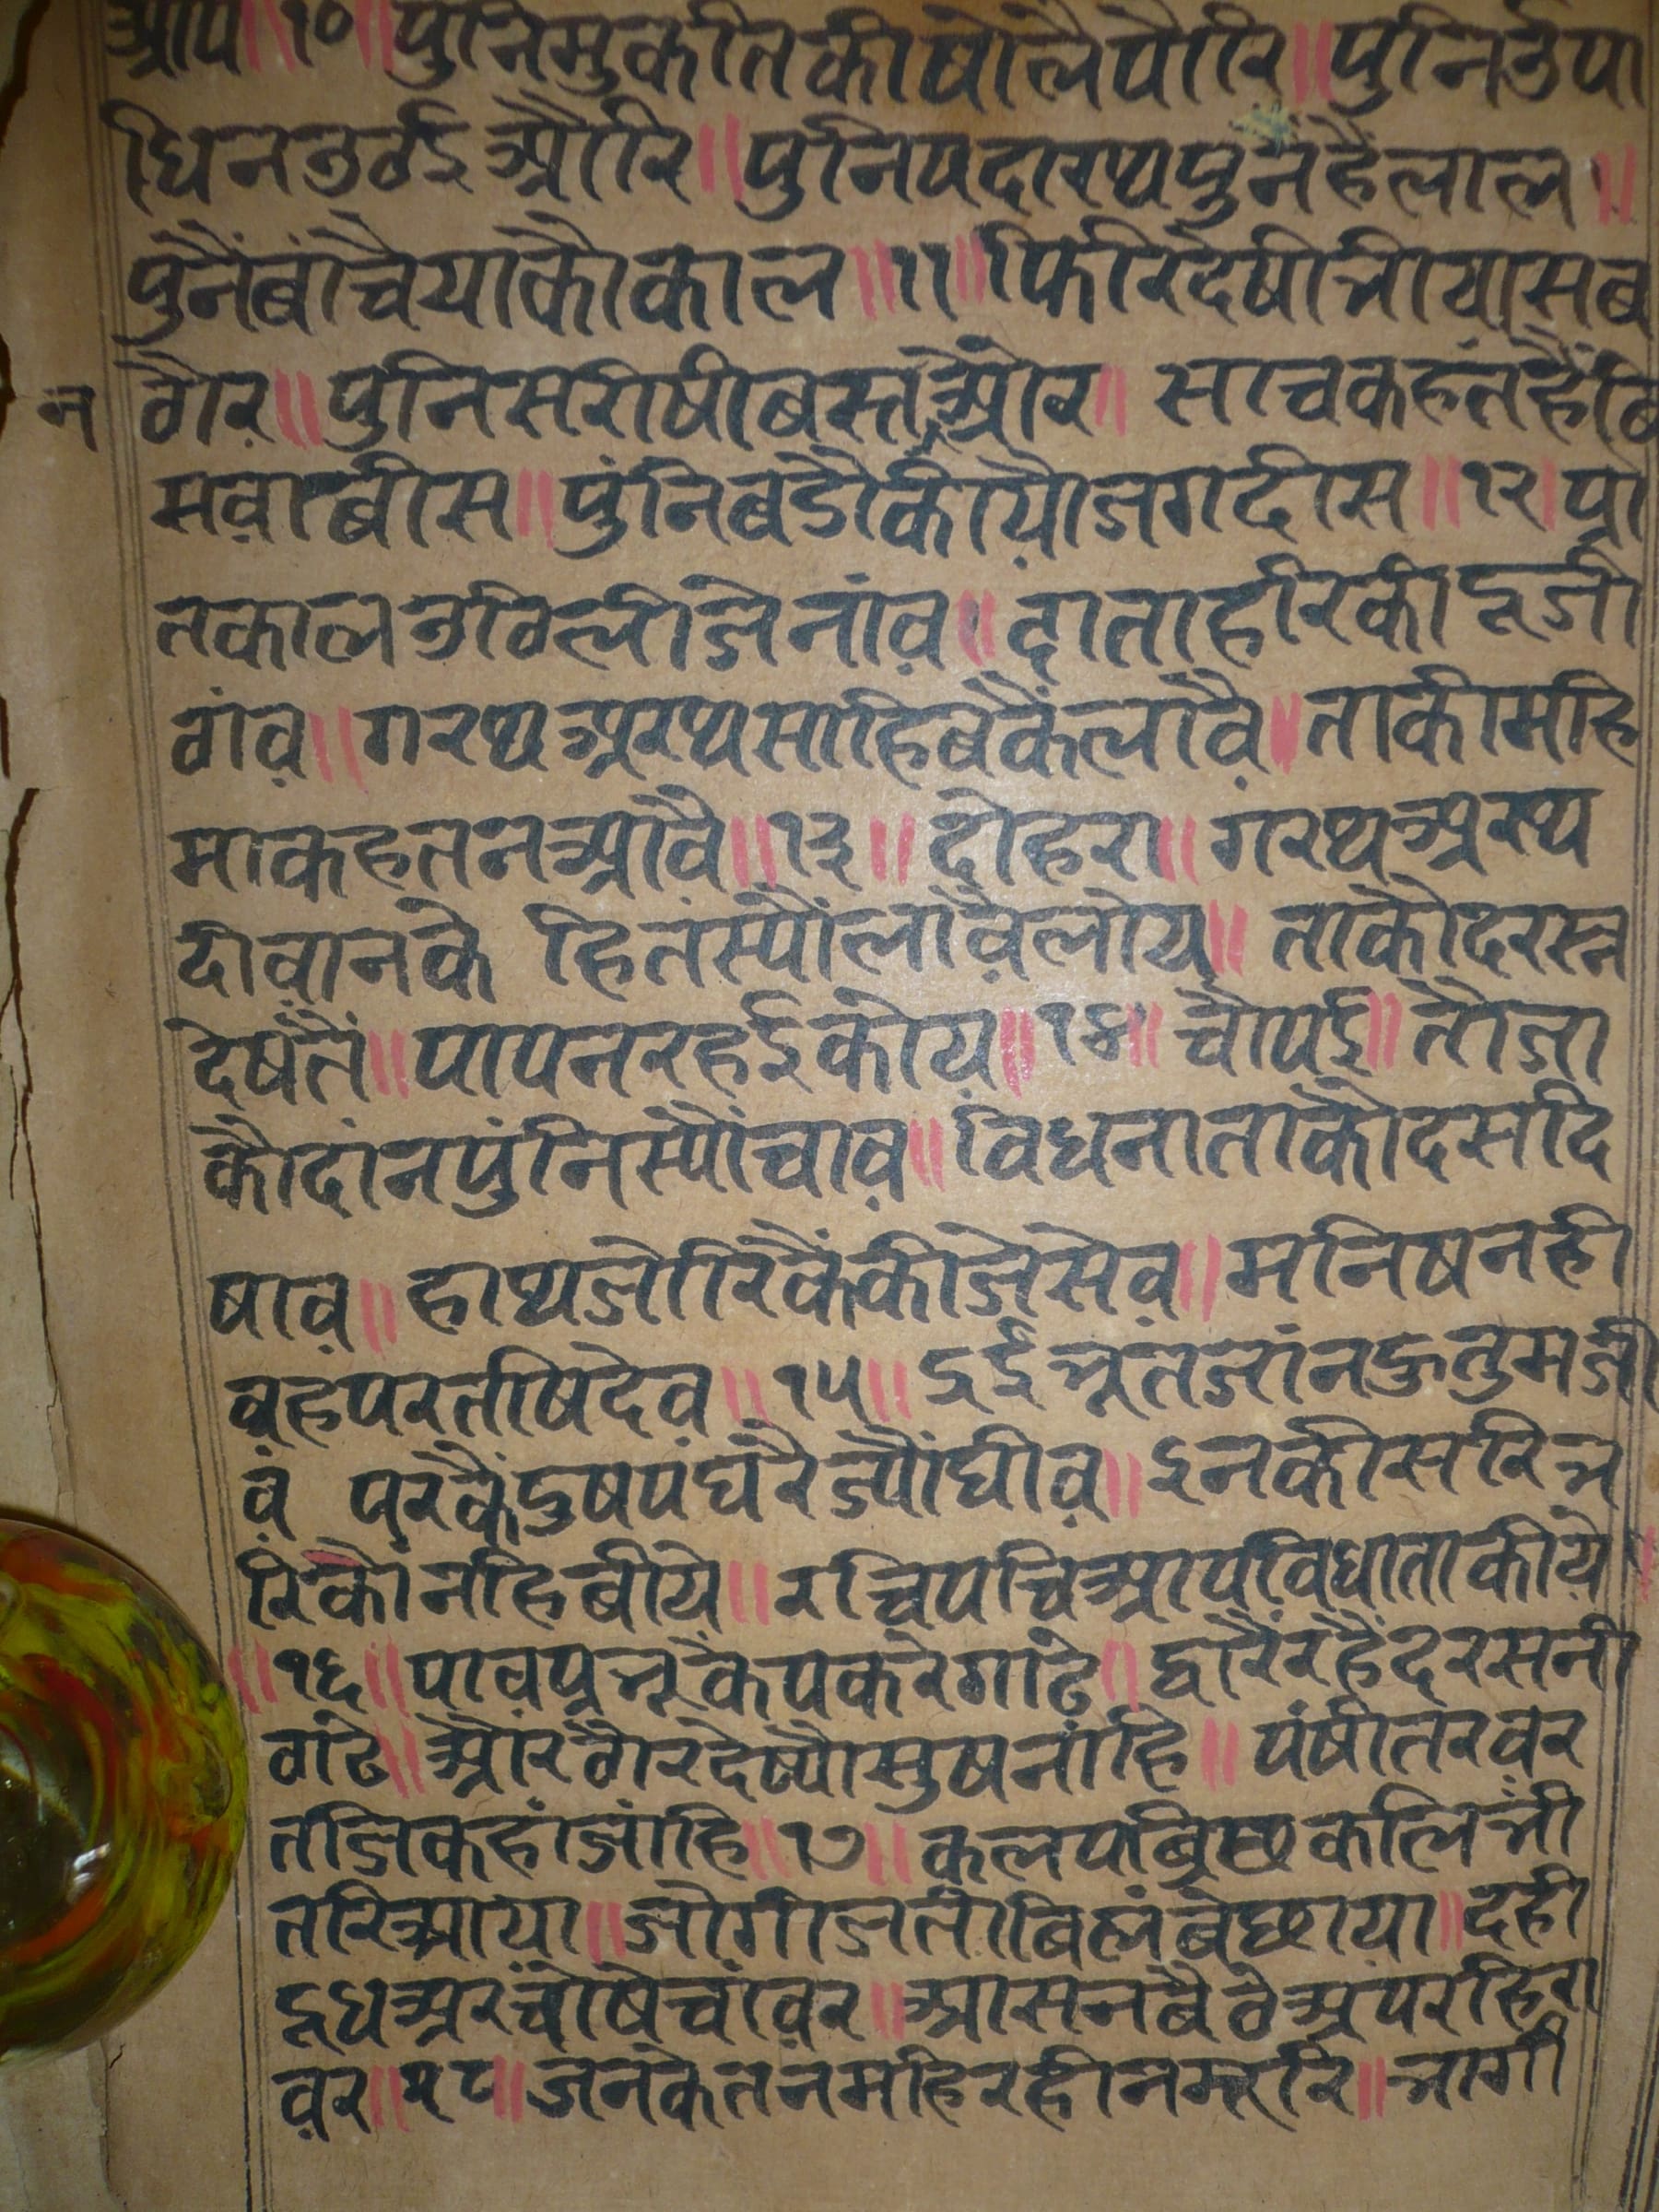 आप॥१०॥पुनिमुकतिकीषोलैपौरि॥पुनिउपा
धिनउठईऔरि॥पुनिपदारथपुनहैलाल॥
पुनैंबांचैयाकौकाल॥११॥फिरिदेषीभीयासब
ठौर॥पुनिसरीषीबस्तऔर॥साचकहतहैंबि
न
मवाबीस॥पुंनिबडौकीयोजगदीस॥१२॥प्रा
तकालउठिलीजेनांव॥दाताहरिकीदूजी
ठांव॥गरथअरथसाहिबकैंलावै॥ताकीमहि
माकहतनआवै॥१३॥दोहरा॥गरथअरथ
दीवानके हितस्यौंलावैलोय॥ताकौदरस्न
देषतैं॥पापनरहईकोय॥१४॥चौपई॥तौजा
कौदांनपुंनिस्यौंचाव॥विधनाताकौदर्सदि
षाव॥हाथजोरिकैंकीजेसेव॥मनिषनही
वहपरतषिदेव॥१५॥ईईभूतजांनहुतुमजी
व परकैंदुषपघरैज्यौंघीव॥इनकीसरिभ
रिकौनहिबीये॥रचिपचिआपविधाताकीये
॥१६॥पावपुन्नूकेपकरेगाढे॥द्वारैंरहैंदरसनी
ठाढे॥औरठौरदेष्यौसुषनांहि॥पंषीतरवर
तजिकहांजांहि॥१७॥कलपब्रिछकलिभी
तरिआया॥जोगीजतीबिलंबेछाया॥दही
दूधअरचोषेचांवर॥आसनबैठेअपरहिरा
वर॥१८॥जनकेतनमहिरहीनमूरि॥भागी